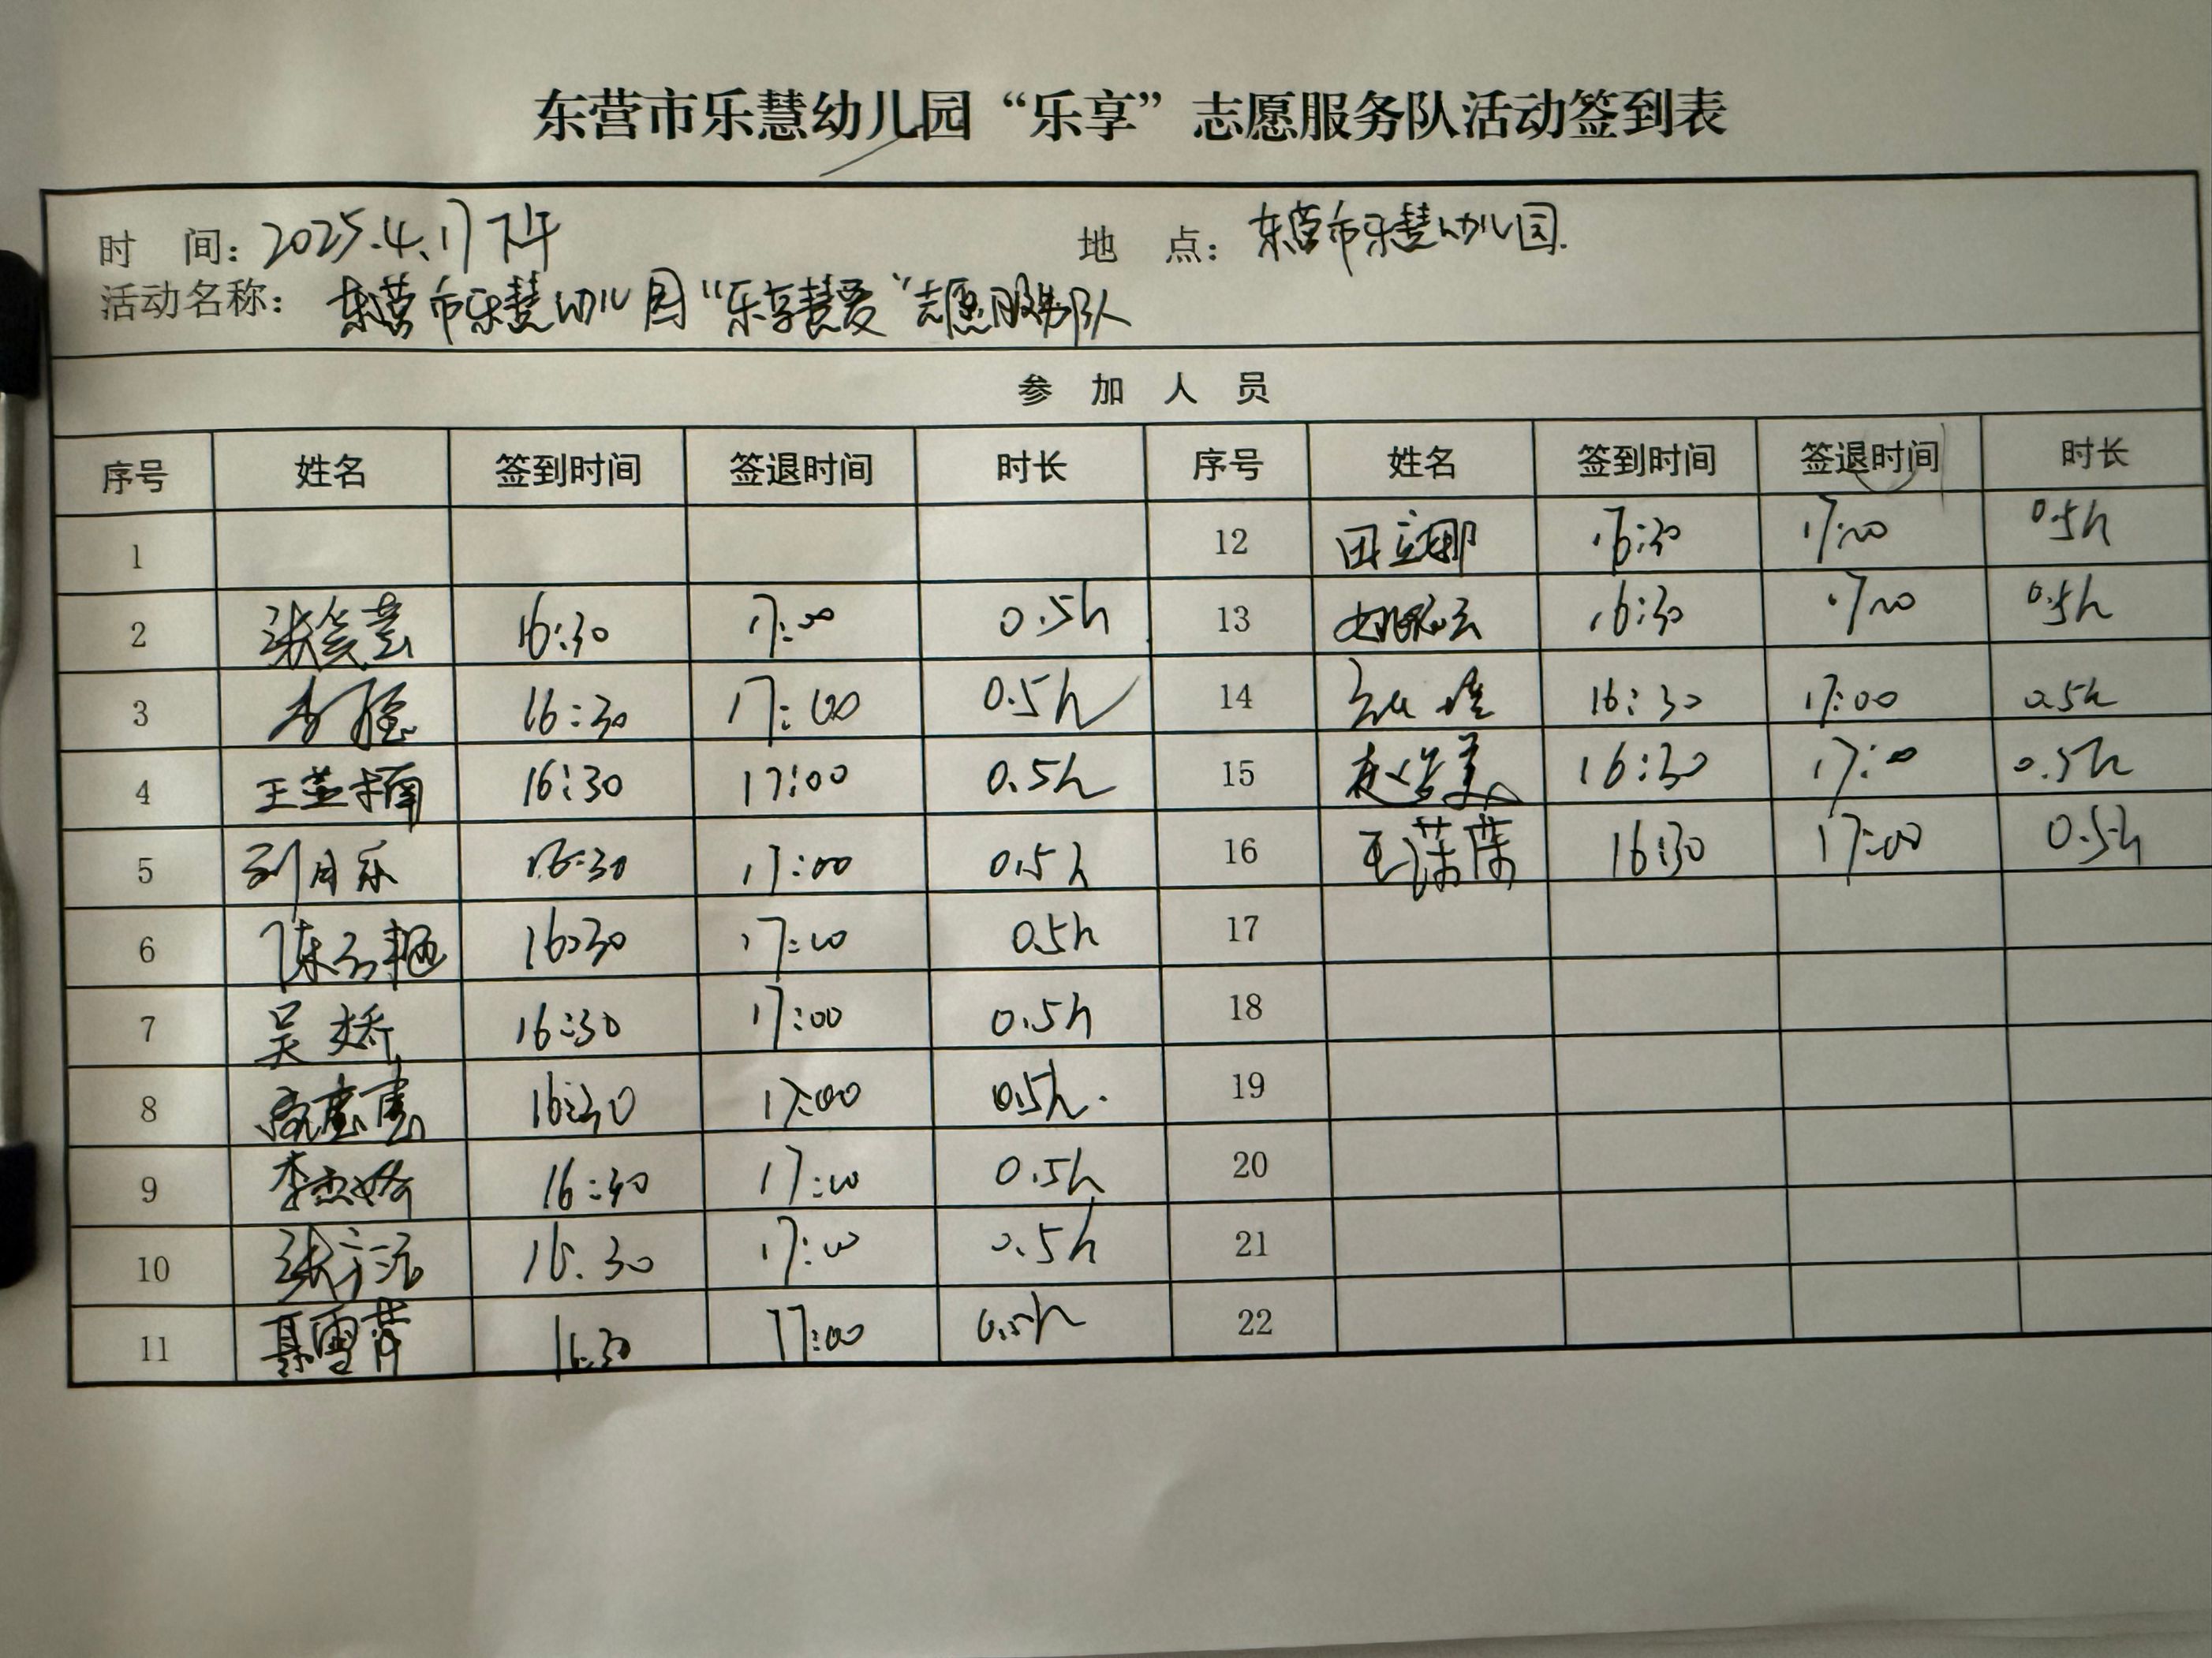 东营市乐慧幼儿园“乐享”志愿服务队活动签到表
时 间：2025.4.17下午 地 点：东营市乐慧幼儿园.
活动名称：东营市乐慧幼儿园“乐享慧爱”志愿服务队
参 加 人 员
序号 姓名 签到时间 签退时间 时长 序号 姓名 签到时间 签退时间 时长
1 12 田立娜 16:30 17:00 0.5h
2 16:30 17:00 0.5h 13 16:30 17:00 0.5h
3 16:30 17:00 0.5h 14 16:30 17:00 0.5h
4 王楠 16:30 17:00 0.5h 15 赵美 16:30 17:00 0.5h
5 刘月乐 16:30 17:00 0.5h 16 王 16:30 17:00 0.5h
6 陈 16:30 17:00 0.5h 17
7 吴娇 16:30 17:00 0.5h 18
8 16:30 17:00 0.5h. 19
9 李杰 16:30 17:00 0.5h 20
10 张 16.30 17:00 0.5h 21
11 聂雪芹 16:30 17:00 0.5h 22